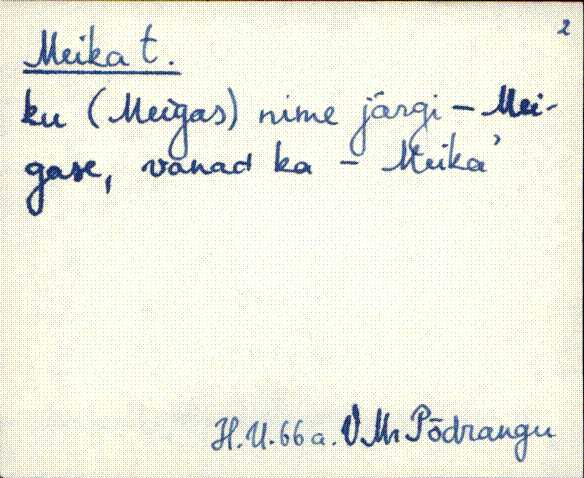 2
Meika t.
ku (Meigas) nime järgi – Mei-
gase, vanad ka – Meika'
H.U. 66 a. V.M. Põdrangu